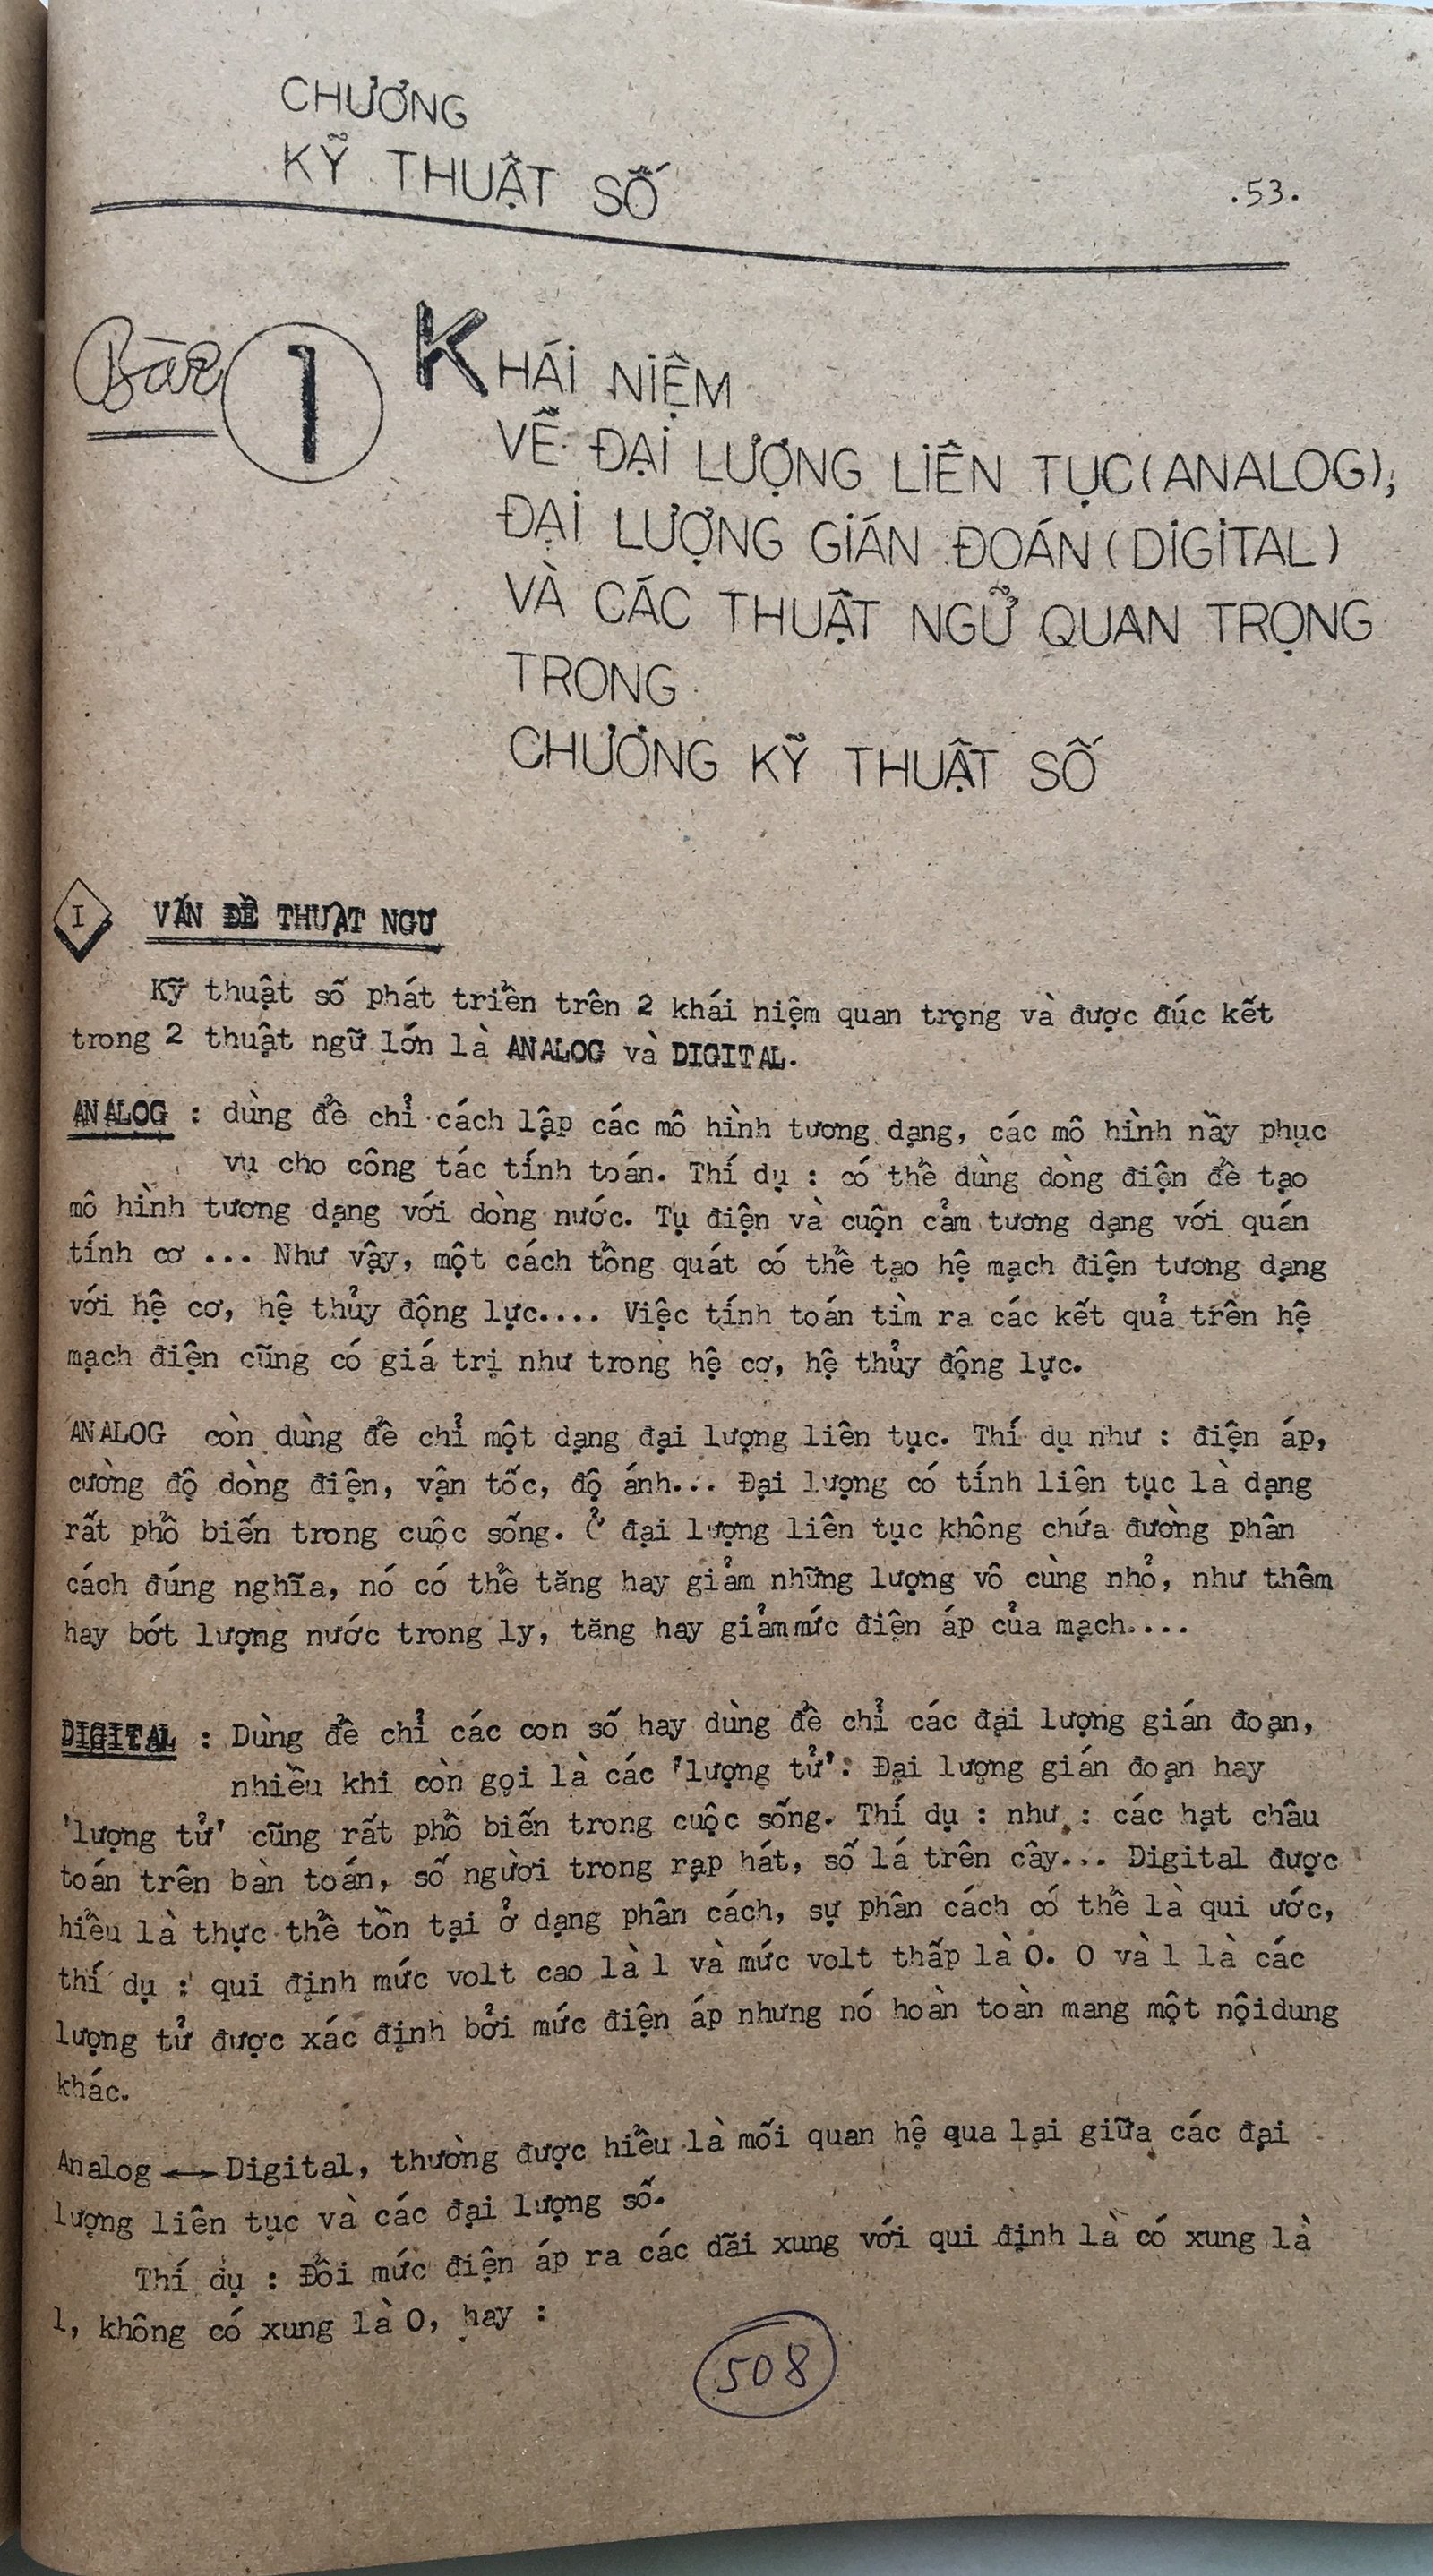 CHƯƠNG
KỸ THUẬT SỐ
.53.
Bài 1 KHÁI NIỆM
VỀ ĐẠI LƯỢNG LIÊN TỤC (ANALOG),
ĐẠI LƯỢNG GIÁN ĐOÁN (DIGITAL)
VÀ CÁC THUẬT NGỮ QUAN TRỌNG
TRONG
CHƯƠNG KỸ THUẬT SỐ
I VẤN ĐỀ THUẬT NGƯ
Kỹ thuật số phát triển trên 2 khái niệm quan trọng và được đúc kết
trong 2 thuật ngữ lớn là ANALOG và DIGITAL.
ANALOG : dùng để chỉ cách lập các mô hình tương dạng, các mô hình nầy phục
vụ cho công tác tính toán. Thí dụ : có thể dùng dòng điện để tạo
mô hình tương dạng với dòng nước. Tụ điện và cuộn cảm tương dạng với quán
tính cơ ... Như vậy, một cách tổng quát có thể tạo hệ mạch điện tương dạng
với hệ cơ, hệ thủy động lực.... Việc tính toán tìm ra các kết quả trên hệ
mạch điện cũng có giá trị như trong hệ cơ, hệ thủy động lực.
ANALOG còn dùng để chỉ một dạng đại lượng liên tục. Thí dụ như : điện áp,
cường độ dòng điện, vận tốc, độ ánh... Đại lượng có tính liên tục là dạng
rất phổ biến trong cuộc sống. Ở đại lượng liên tục không chứa đường phân
cách đúng nghĩa, nó có thể tăng hay giảm những lượng vô cùng nhỏ, như thêm
hay bớt lượng nước trong ly, tăng hay giảm mức điện áp của mạch....
DIGITAL : Dùng để chỉ các con số hay dùng để chỉ các đại lượng gián đoạn,
nhiều khi còn gọi là các 'lượng tử'. Đại lượng gián đoạn hay
'lượng tử' cũng rất phổ biến trong cuộc sống. Thí dụ : như : các hạt châu
toán trên bàn toán, số người trong rạp hát, số lá trên cây... Digital được
hiểu là thực thể tồn tại ở dạng phân cách, sự phân cách có thể là qui ước,
thí dụ : qui định mức volt cao là 1 và mức volt thấp là 0. 0 và 1 là các
lượng tử được xác định bởi mức điện áp nhưng nó hoàn toàn mang một nộidung
khác.
Analog ⟷ Digital, thường được hiểu là mối quan hệ qua lại giữa các đại
lượng liên tục và các đại lượng số.
Thí dụ : Đổi mức điện áp ra các dãi xung với qui định là có xung là
1, không có xung là 0, hay :
508